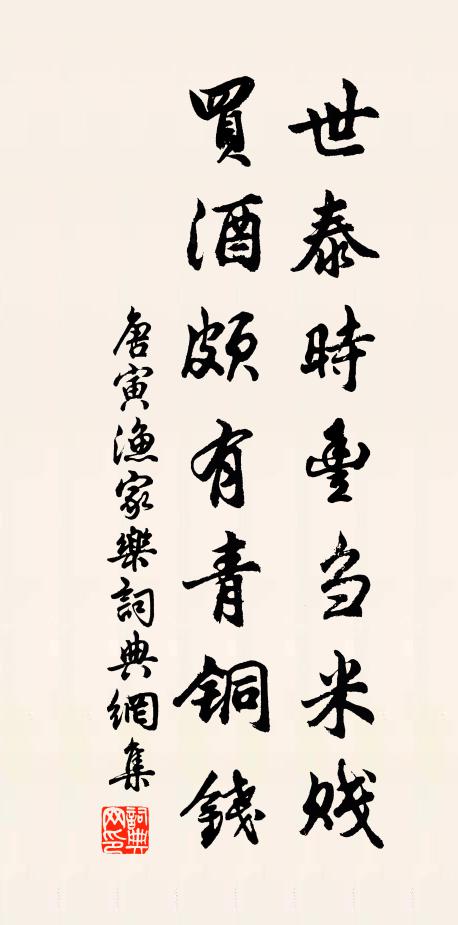 世泰時豐刍米賤
買酒頗有青銅錢
唐寅漁家樂詞典網集
詞典網印